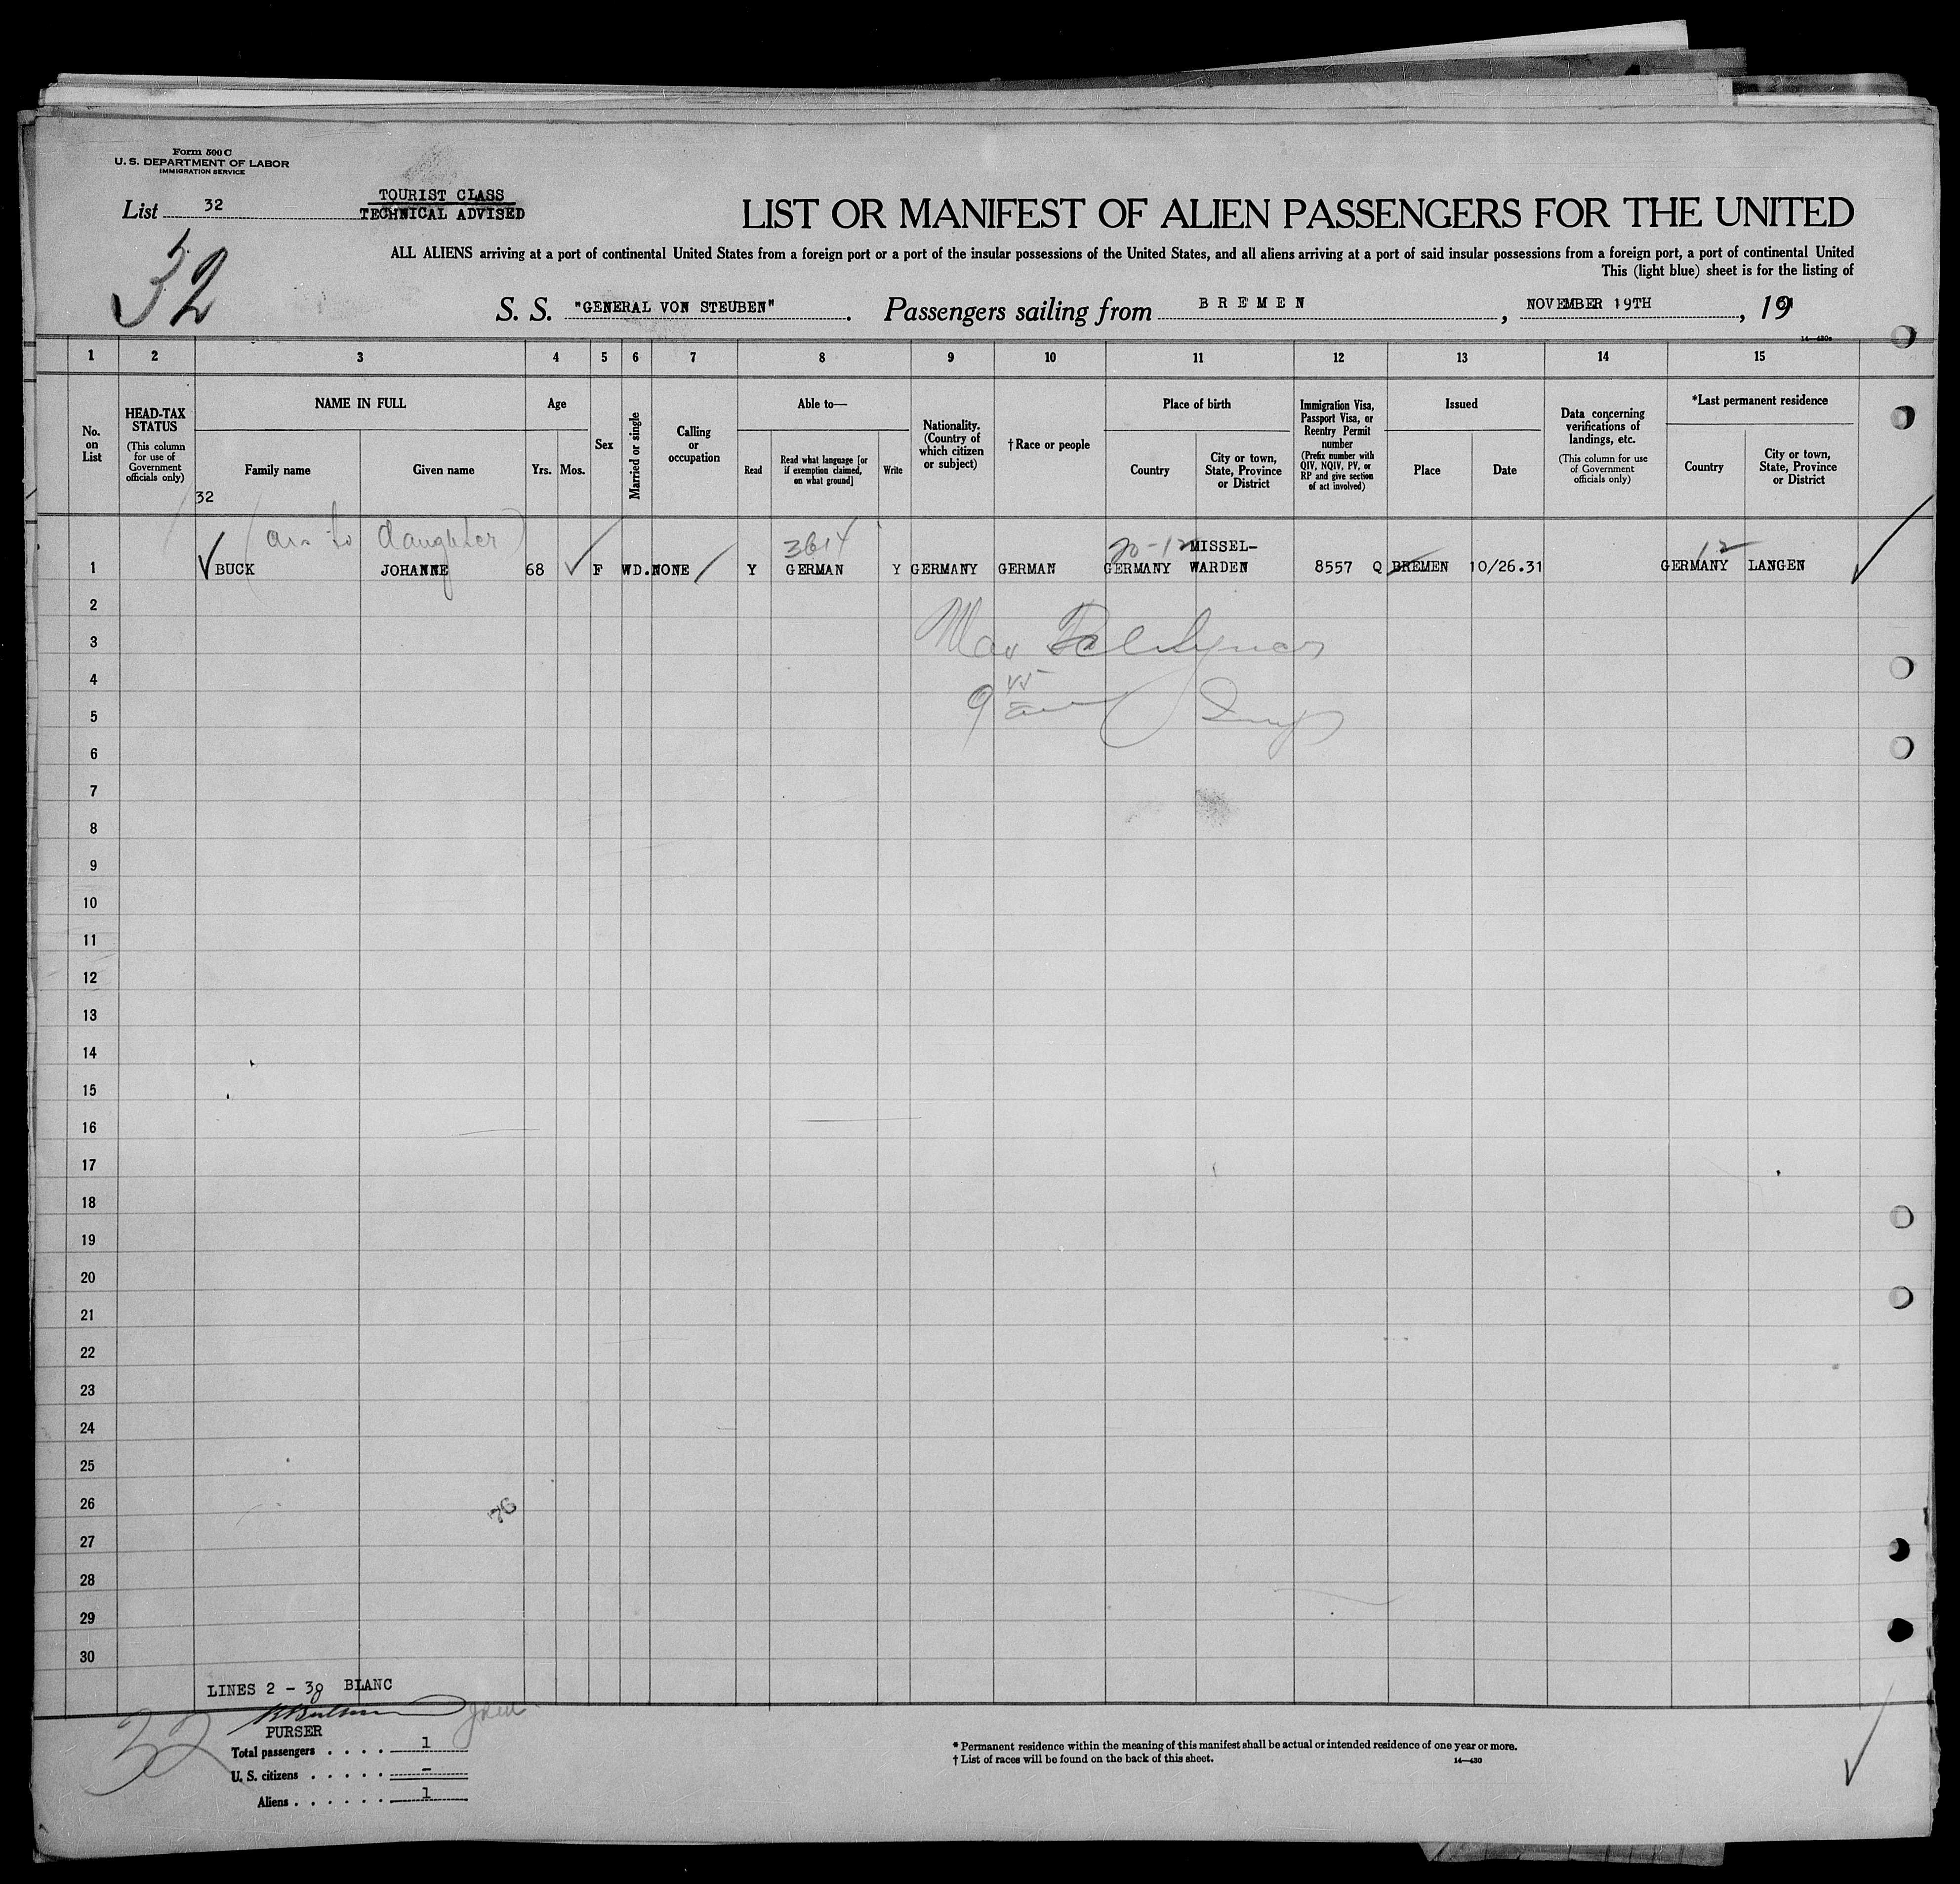 Form 500 C
U. S. DEPARTMENT OF LABOR
IMMIGRATION SERVICE
List 32
TOURIST CLASS
TECHNICAL ADVISED
32
LIST OR MANIFEST OF ALIEN PASSENGERS FOR THE UNITED
ALL ALIENS arriving at a port of continental United States from a foreign port or a port of the insular possessions of the United States, and all aliens arriving at a port of said insular possessions from a foreign port, a port of continental United
This (light blue) sheet is for the listing of
S. S. "GENERAL VON STEUBEN". Passengers sailing from BREMEN, NOVEMBER 19TH, 19
1 2 3 4 5 6 7 8 9 10 11 12 13 14 15
No. on List
HEAD-TAX STATUS
(This column for use of Government officials only)
NAME IN FULL
Family name
Given name
32
Age
Yrs. Mos.
Sex
Married or single
Calling or occupation
Able to—
Read
Read what language [or if exemption claimed, on what ground]
Write
Nationality. (Country of which citizen or subject)
†Race or people
Place of birth
Country
City or town, State, Province or District
Immigration Visa, Passport Visa, or Reentry Permit number
(Prefix number with QIV, NQIV, PV, or RP and give section of act involved)
Issued
Place
Date
Data concerning verifications of landings, etc.
(This column for use of Government officials only)
*Last permanent residence
Country
City or town, State, Province or District
to daughter)
20-12 MISSEL-
12
1 BUCK JOHANNE 68 F WD. NONE Y GERMAN Y GERMANY GERMAN GERMANY WARDEN 8557 Q BREMEN 10/26.31 GERMANY LANGEN
2
3
4
5
6
7
8
9
10
11
12
13
14
15
16
17
18
19
20
21
22
23
24
25
26
27
28
29
30
76
LINES 2 - 30 BLANC
32
PURSER
Total passengers . . . . 1
U. S. citizens . . . . . -
Aliens . . . . . . 1
* Permanent residence within the meaning of this manifest shall be actual or intended residence of one year or more.
† List of races will be found on the back of this sheet.
14—430